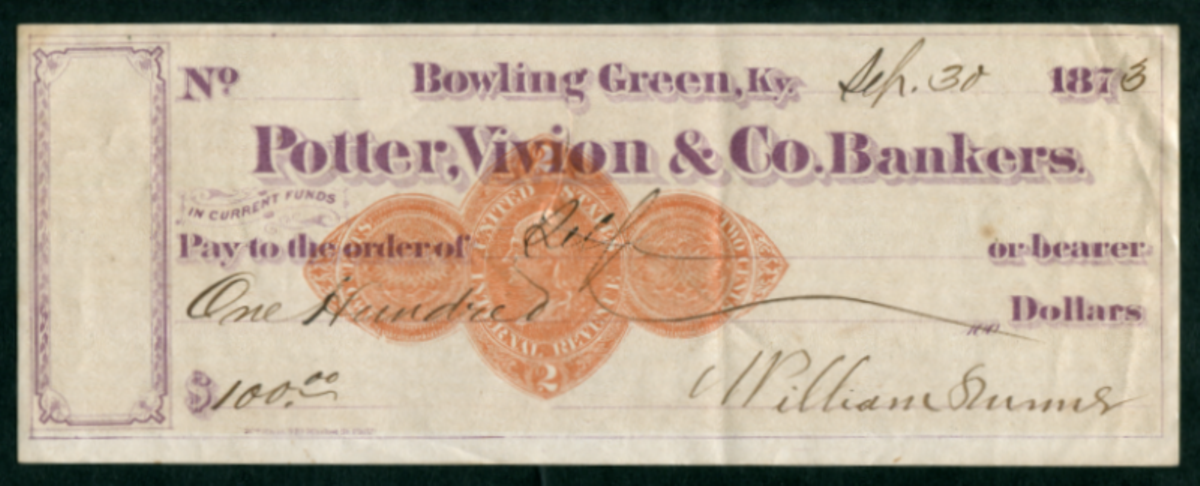 Nº Bowling Green, Ky. Sep. 30 1873
Potter, Vivion & Co. Bankers.
IN CURRENT FUNDS
UNITED STATES
TWO CENTS
Pay to the order of Self or bearer
One Hundred Dollars
INTERNAL REVENUE
2
$100.00
William